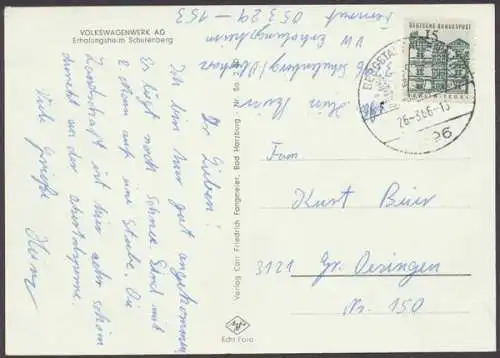 VOLKSWAGENWERK AG
Erholungsheim Schulenberg
Fernruf
05329 – 153
VW Erholungsheim
Schulenberg / Oberharz
Heinz Beier
Ihr Lieben!
Ich bin hier gut angekommen
Es liegt noch Schnee. Sind mit
2 Mann auf eine Stube. Die
Landschaft ist hier sehr schön
direkt an der Okertalsperre.
Viele Grüße
Heinz
Verlag Carl Friedrich Fangmeier, Bad Harzburg - Nr. So
Agfa
Echt Foto
DEUTSCHE BUNDESPOST
15
26-3.66-15
Fam.
Kurt Beier
3121 Gr. Oesingen
Nr. 150